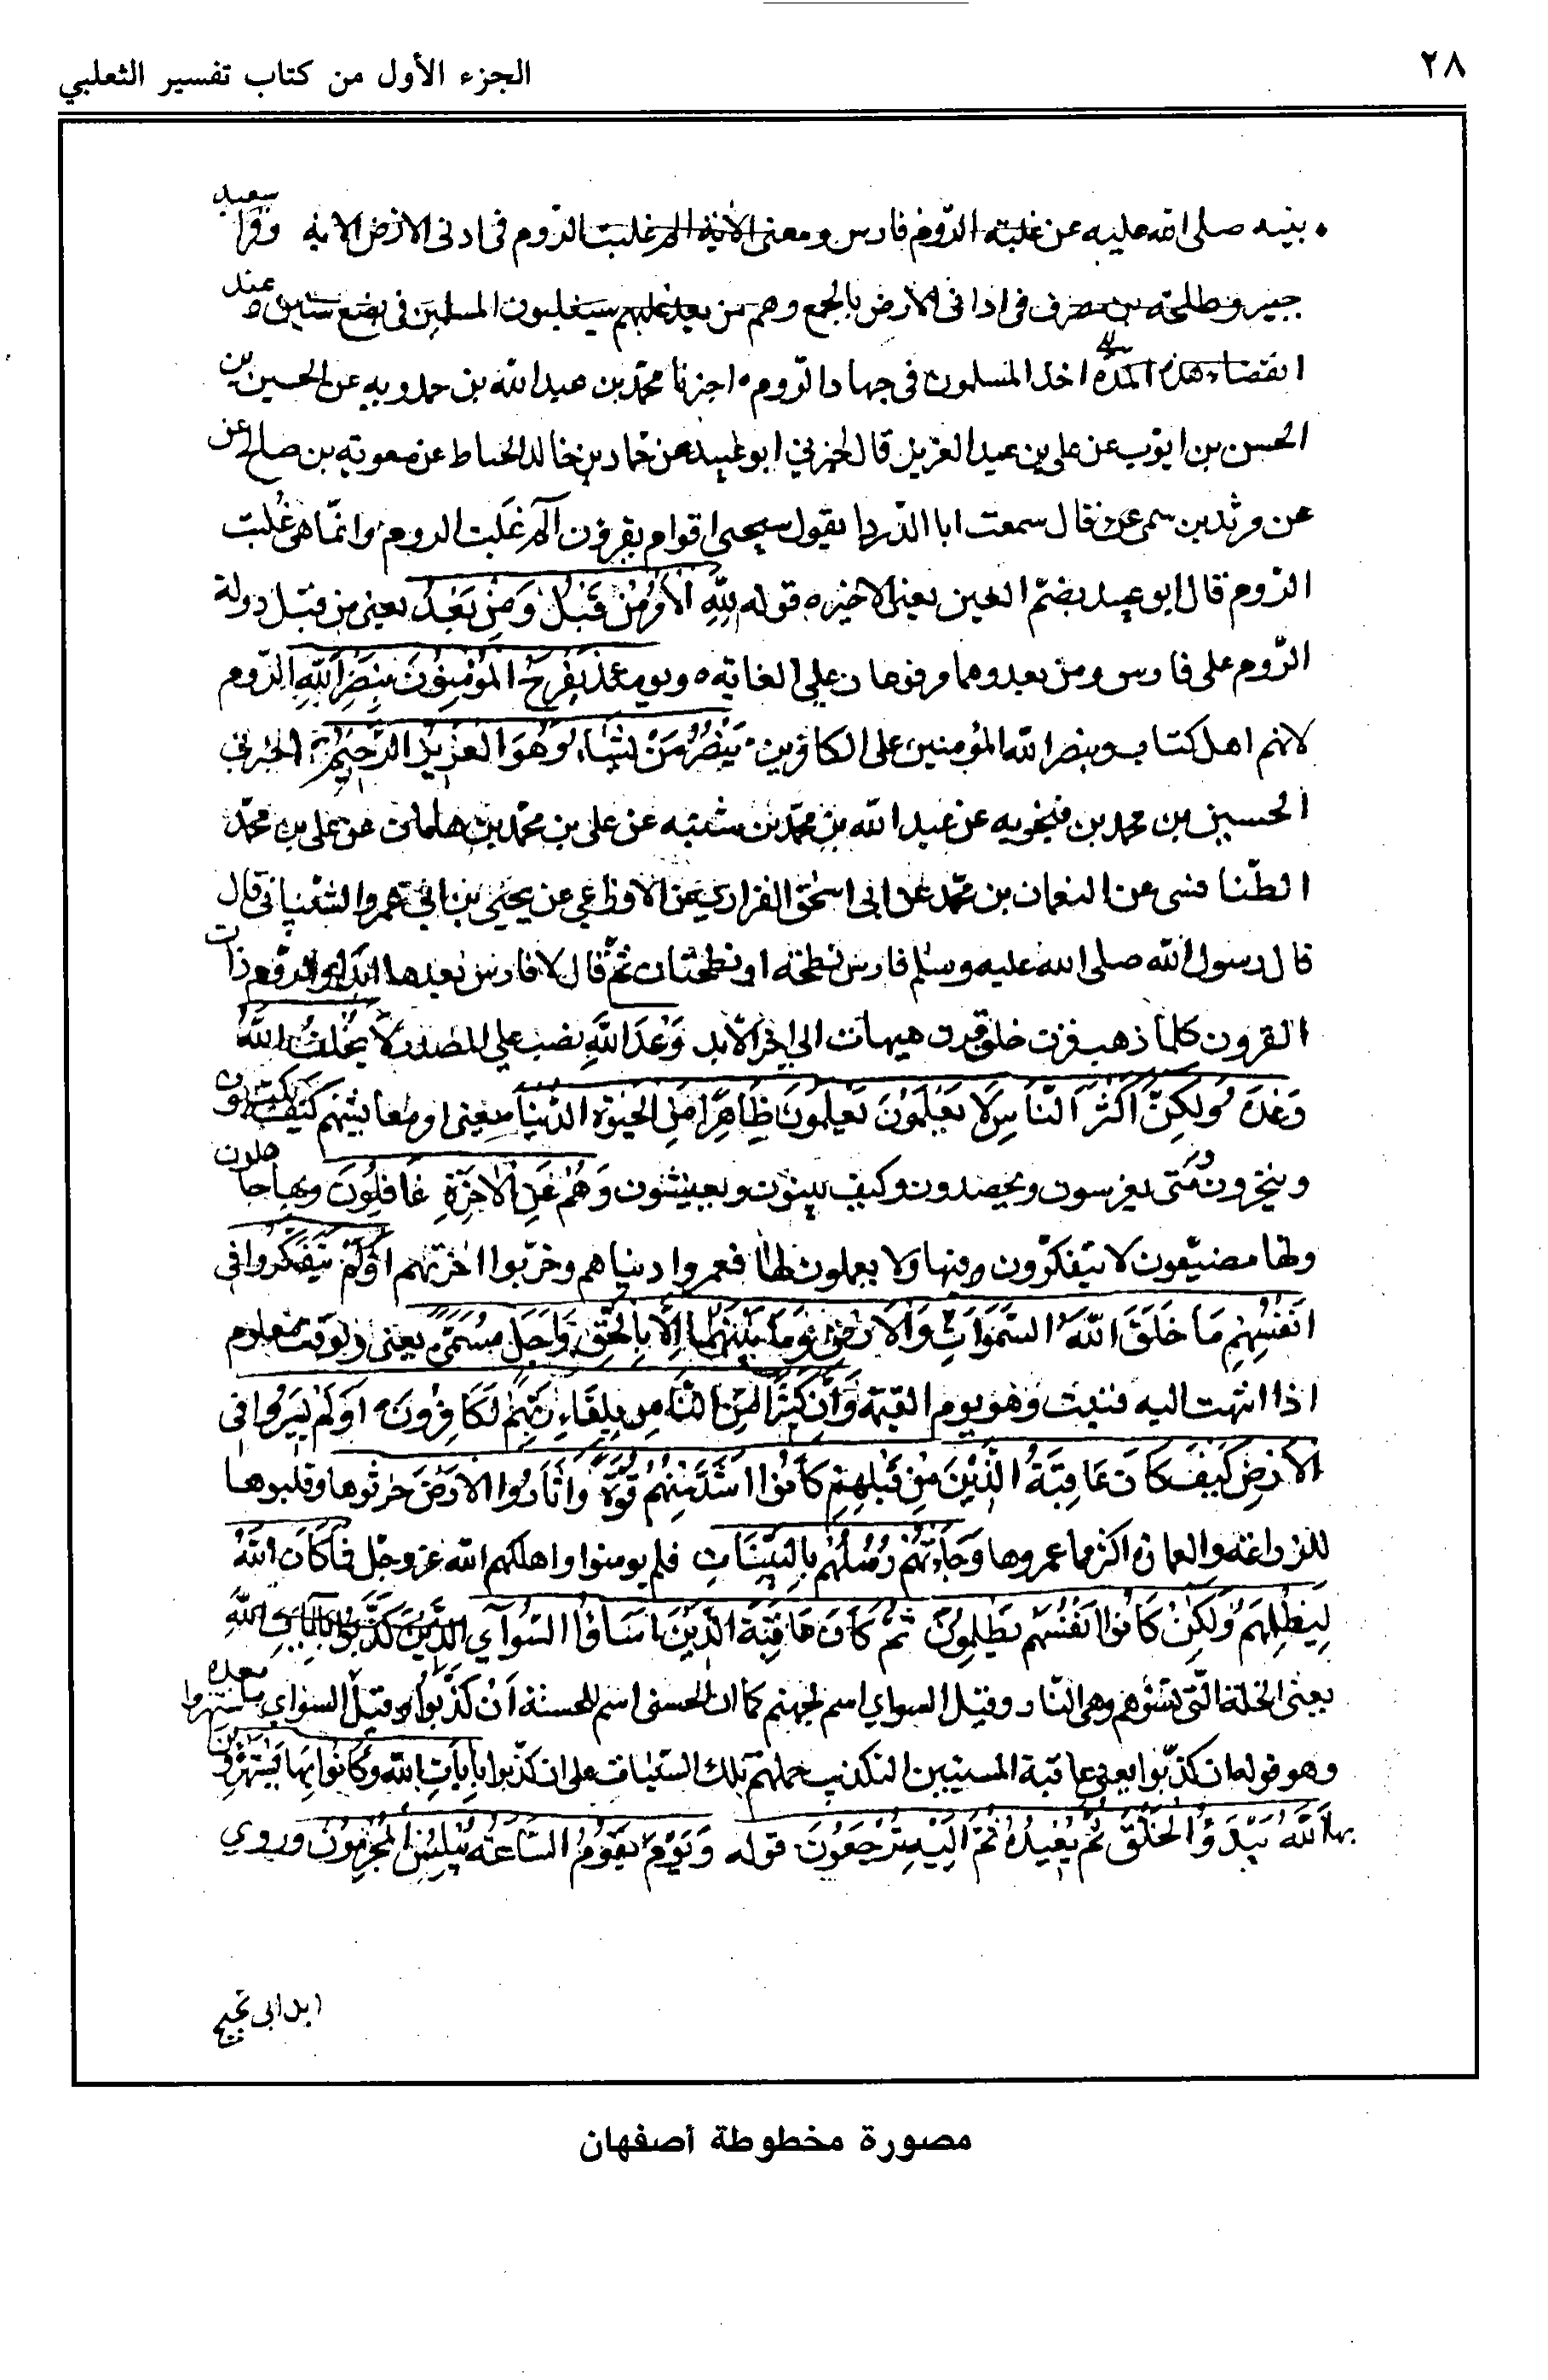 ٢٨
الجزء الأول من كتاب تفسير الثعلبي
بنيه صلى الله عليه عن غلبته الروم فارس ومعنى الاية الم غلبت الروم فى ادنى الارض الاية وقرا سعيد
جبير وطلحة بن مصرف فى ادانى الارض بالجمع وهم من بعد غلبهم سيغلبون المسلمين فى بضع سنين عند
انقضاء هذه المدة اخذ المسلمون فى جهاد الروم اخبرنا محمد بن عبد الله بن حمدويه عن الحسين بن
الحسن بن ايوب عن على بن عبد العزيز قال اخبرني ابو عبيد عن حماد بن خالد الخياط عن معوية بن صالح عن
عن مرثد بن سمى عن قال سمعت ابا الدردا يقول سيجى اقوام يقرؤن الم غلبت الروم وانما هى غلبت
الروم قال ابو عبيد بضم الغين يعنى الاخيره قوله لله الأمر من قبل ومن بعد يعنى من قبل دولة
الروم على فارس ومن بعد وهما مرفوعان على الغاية ويومئذ يفرح المؤمنون بنصر الله الروم
لانهم اهل كتاب وبنصر الله المؤمنين على الكافرين ينصر من يشاء وهو العزيز الرحيم اخبرنى
الحسين بن محمد بن فنجويه عن عبد الله بن محمد بن شنبه عن على بن محمد بن هامان عن على بن محمد
الطنافسى عن النعمان بن محمد عن ابى اسحق الفزاري عن الاوزاعي عن يحيى بن ابى عمرو الشيبانى قال
قال رسول الله صلى الله عليه وسلم فارس نطحة او نطحتان ثم قال لا فارس بعدها ابدا والروم ذات
القرون كلما ذهب قرن خلف قرن هيهات الى اخر الابد وعد الله نصب على المصدر لا يخلف الله
وعده ولكن أكثر الناس لا يعلمون يعلمون ظاهرا من الحيوة الدنيا يعنى امر معايشهم كيف يكتسبون
ويتجرون ومتى يغرسون ويحصدون وكيف يبنون ويعيشون وهم عن الآخرة غافلون وبها جاهلون
ولها مضيعون لا يتفكرون فيها ولا يعملون لها فعمروا دنياهم وخربوا اخرتهم أولم يتفكروا فى
انفسهم ما خلق الله السموات والارض وما بينهما إلا بالحق وأجل مسمى يعنى ولوقت معلوم
اذا انتهت اليه فنيت وهو يوم القيمة وإن كثيرا من الناس بلقاء ربهم لكافرون اولم يسيروا فى
الارض كيف كان عاقبة الذين من قبلهم كانوا اشد منهم قوة وأثاروا الارض حرثوها وقلبوها
للزراعة والعمارة اكثر مما عمروها وجاءتهم رسلهم بالبينات فلم يومنوا واهلكهم الله عز وجل فما كان الله
ليظلمهم ولكن كانوا انفسهم يظلمون ثم كان عاقبة الذين اساؤا السوآى الذين كذبوا بآيات الله
يعنى الخلة التى تسؤهم وهى النار وقيل السواى اسم لجهنم كما ان الحسنى اسم للحسنة أن كذبوا وقيل السواى
وهو قوله ان كذبوا يعنى عاقبة المسيئين التكذيب حملهم تلك السيئات على ان كذبوا بآيات الله وكانوا بها يستهزؤن
بها الله يبدؤ الخلق ثم يعيده ثم اليه ترجعون قوله ويوم تقوم الساعة يبلس المجرمون وروي
ابن ابى نجيح
مصورة مخطوطة أصفهان